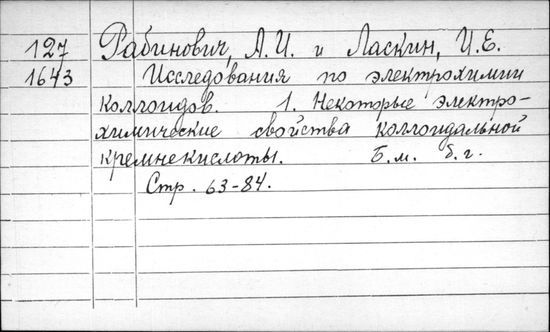 127 Рабинович, А.И. и Ласкин, И.Е.
1643 Исследования по электрохимии
коллоидов. 1. Некоторые электро-
химические свойства коллоидальной
кремнекислоты. Б.м. б.г.
Стр. 63-84.